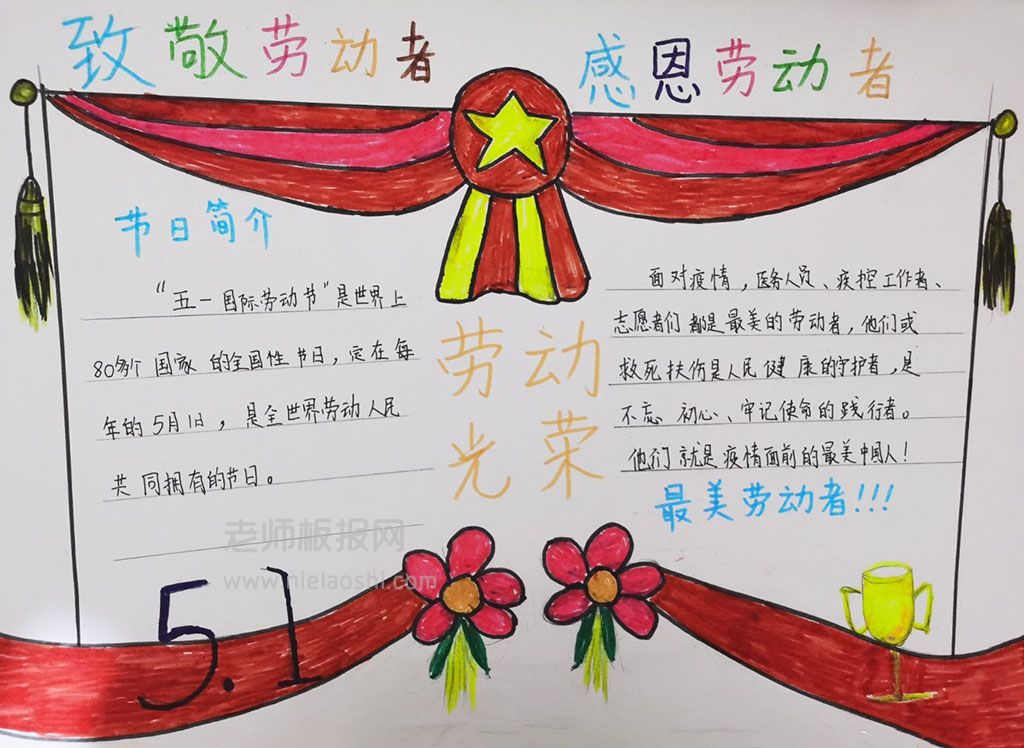 致敬劳动者
感恩劳动者
节日简介
"五一国际劳动节"是世界上
80多个国家的全国性节日，定在每
年的5月1日，是全世界劳动人民
共同拥有的节日。
劳动
光荣
面对疫情，医务人员、疾控工作者、
志愿者们都是最美的劳动者，他们或
救死扶伤是人民健康的守护者，是
不忘初心、牢记使命的践行者。
他们就是疫情面前的最美中国人！
最美劳动者!!!
老师板报网
www.nielaoshi.com
5.1